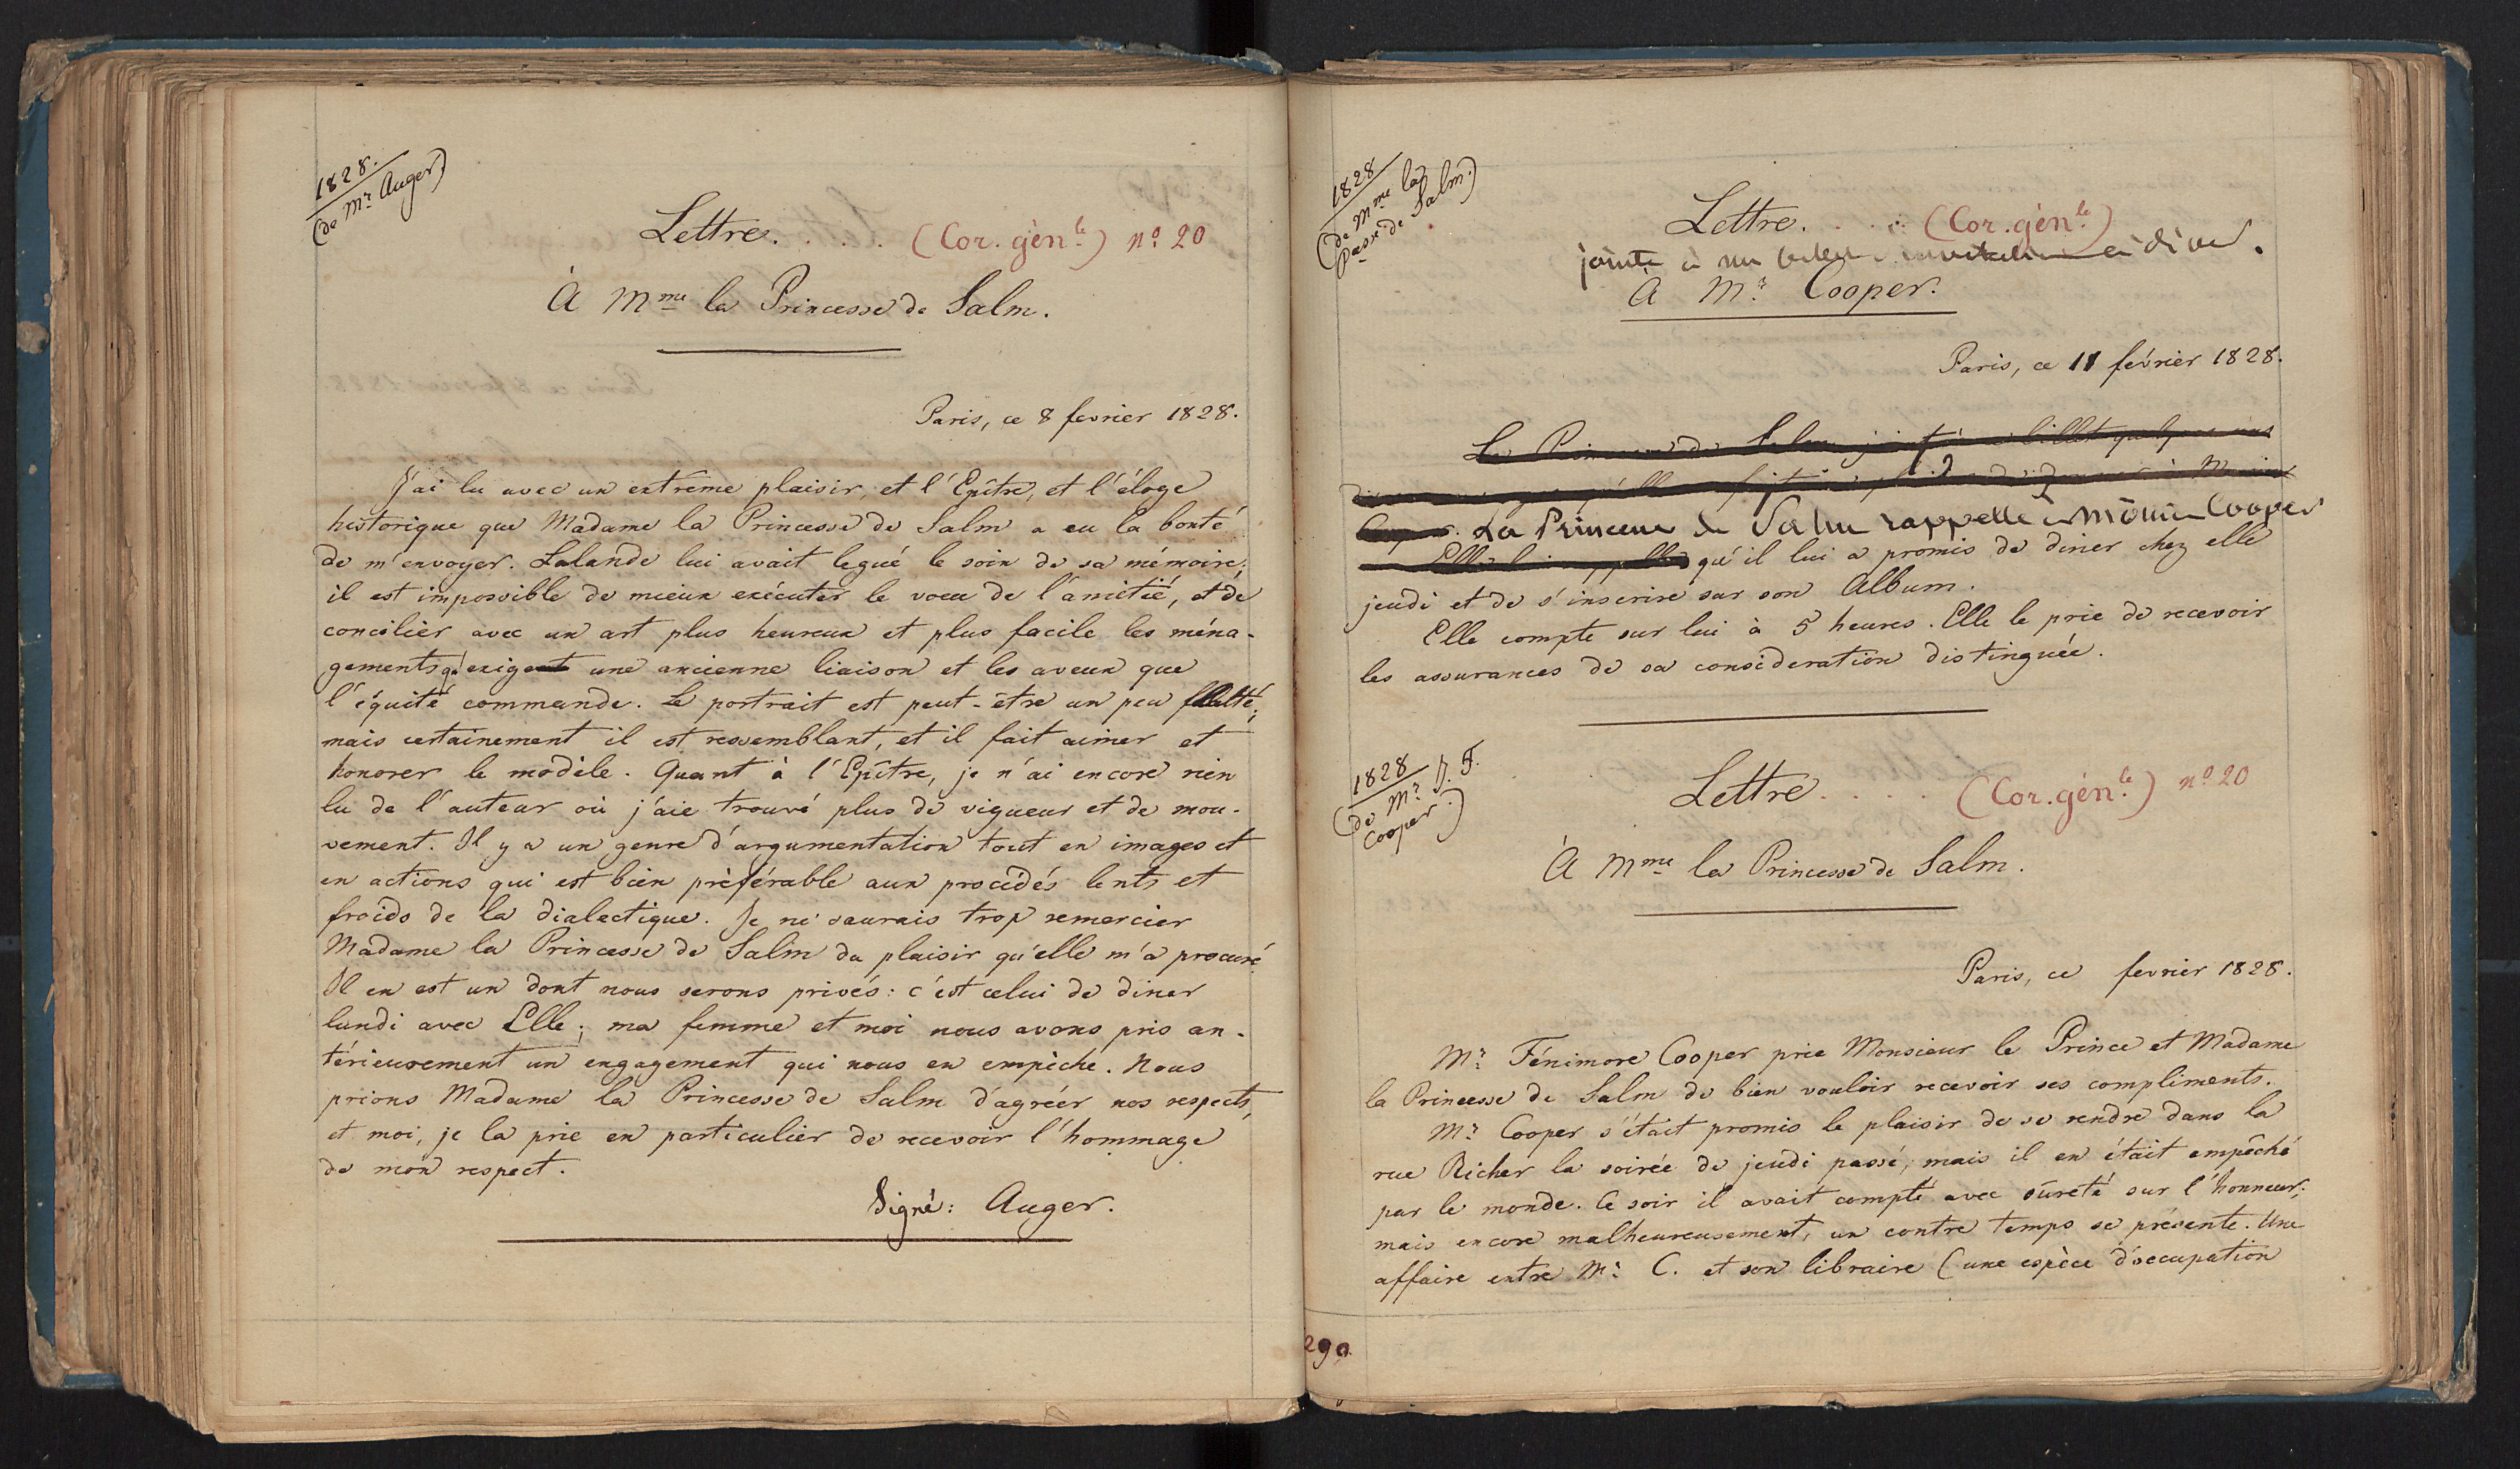 1828.
(de Mr. Auger)
Lettre. . . . (Cor. gènle.) no. 20
À Mme la Princesse de Salm.
Paris, ce 8 fevrier 1828.
J'ai lu avec un extrême plaisir, et l'Epître, et l'éloge
historique que Madame la Princesse de Salm a eu la bonté
de m'envoyer. Lalande lui avait legué le soin de sa mémoire;
il est impossible de mieux exécuter le voeu de l'amitié, et de
concilier avec un art plus heureux et plus facile les ména-
gements qu'exige une ancienne liaison et les aveux que
l'équité commande. Le portrait est peut-être un peu flatté;
mais certainement il est ressemblant, et il fait aimer et
honorer le modèle. Quant à l'Epître, je n'ai encore rien
lu de l'auteur où j'aie trouvé plus de vigueur et de mou-
vement. Il y a un genre d'argumentation tout en images et
en actions qui est bien préférable aux procédés lents et
froids de la dialectique. Je ne saurais trop remercier
Madame la Princesse de Salm du plaisir qu'elle m'a procuré
Il en est un dont nous serons privés: c'est celui de diner
lundi avec Elle; ma femme et moi nous avons pris an-
térieurement un engagement qui nous en empêche. Nous
prions Madame la Princesse de Salm d'agréer nos respects,
et moi, je la prie en particulier de recevoir l'hommage
de mon respect.
Signé: Auger.
1828
(de Mme la
Passe de Salm.)
Lettre. . . . (Cor. gènle.)
jointe à un billet d'invitation à diner.
À Mr. Cooper.
Paris, ce 11 février 1828.
La Princesse de Salm joint à ce billet quelques uns
La Princesse de Salm rappelle à Monsieur Cooper
qu'il lui a promis de diner chez elle
jeudi et de s'inscrire sur son Album.
Elle compte sur lui à 5 heures. Elle le prie de recevoir
les assurances de sa consideration distinguée.
1828
(de Mr. J. F.
Cooper.)
Lettre. . . . (Cor. génle.) no 20
À Mme la Princesse de Salm.
Paris, ce fevrier 1828.
Mr. Fénimore Cooper prie Monsieur le Prince et Madame
la Princesse de Salm de bien vouloir recevoir ses compliments.
Mr. Cooper s'était promis le plaisir de se rendre dans la
rue Richer la soirée de jeudi passé; mais il en était empêché
par le monde. Ce soir il avait compté avec sûreté sur l'honneur;
mais encore malheureusement, un contre temps se présente. Une
affaire entre Mr. C. et son libraire (une espèce d'occupation
290